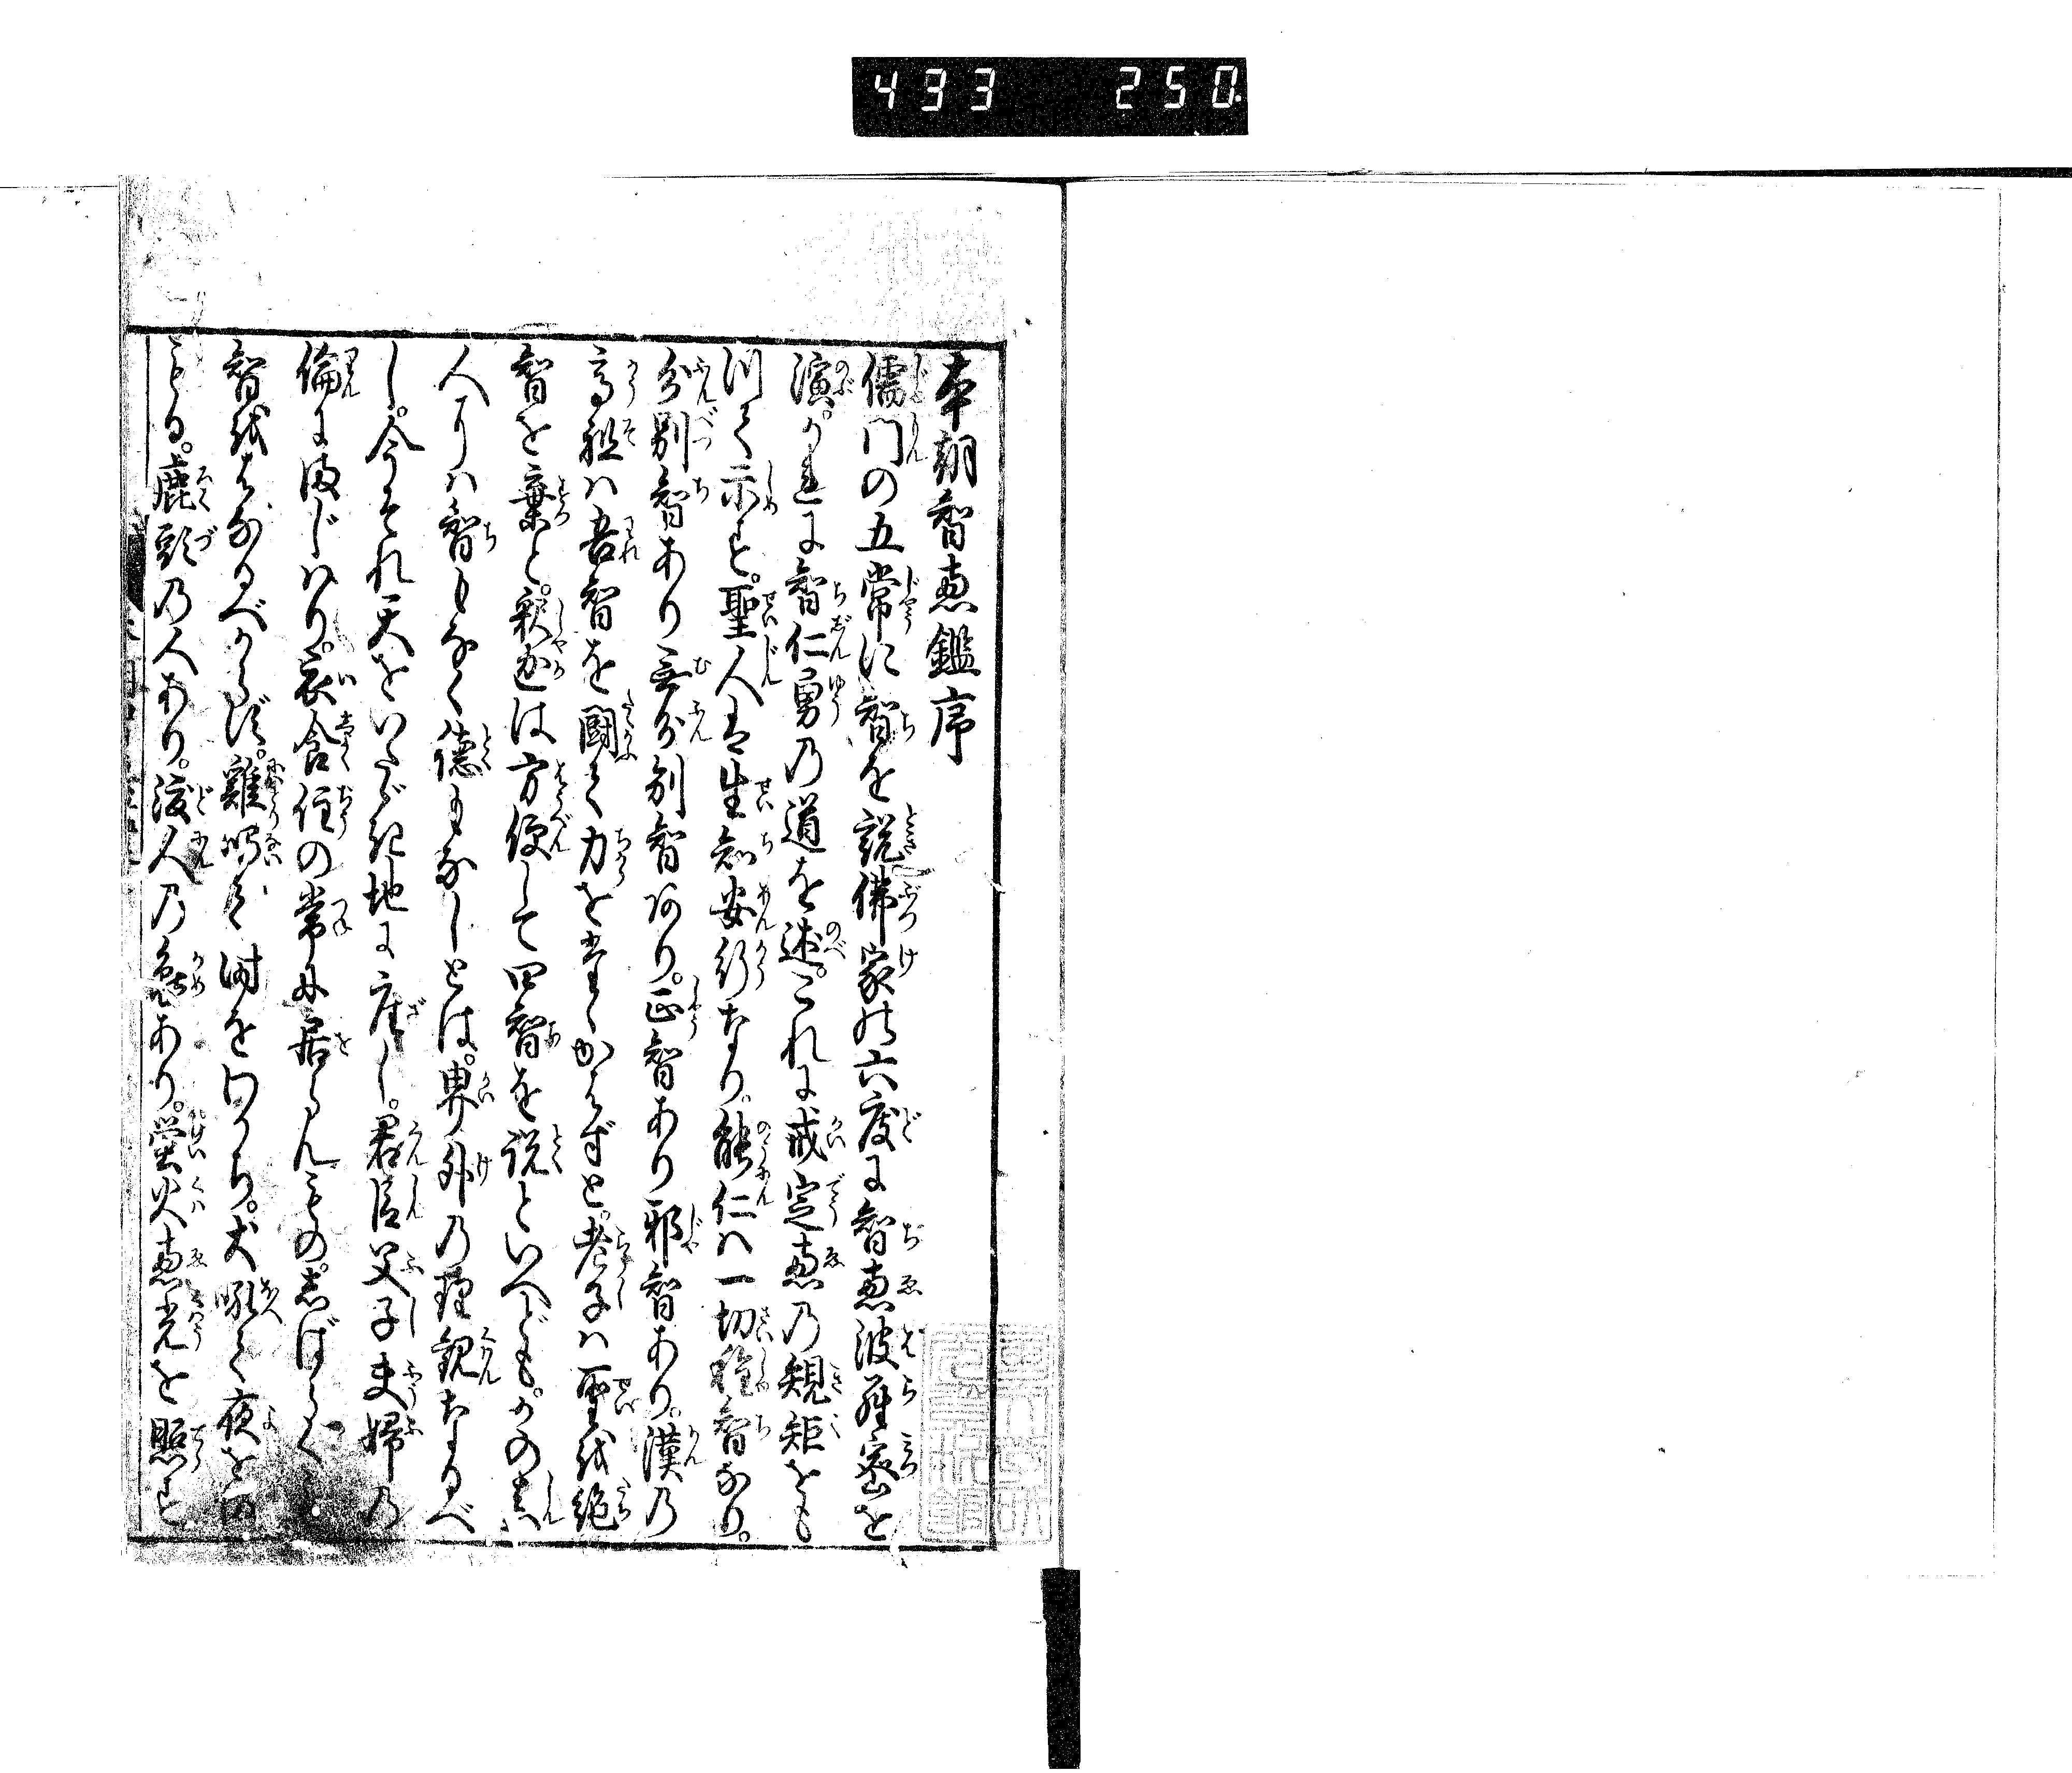 433 250
本朝智恵鑑序
儒門の五常に智を説佛家の六度に智恵波羅密を
演。かれに智仁勇の道を述。これに戒定恵の規矩をも
つて示す。聖人は生知安行なり。能仁ハ一切種智なり。
分別智あり無分別智あり。正智あり邪智あり。漢の
高祖ハ吾智を闘て力をたゝかはずと。老子ハ聖を絶
智を棄と。釈迦は方便して四智を説といへども。かの真
人にハ智もなく徳もなしとは。界外の理観なるべ
し。今それ天をいたゞき地に座し。君臣父子夫婦の
倫にまじハり。衣食住の常に居らんもの。しばらくも
智をはなるべからず。雞鳴て時をわかち。犬吠て夜を
もる。鹿頭の人あり。渡人の亀あり。螢火恵光を照す